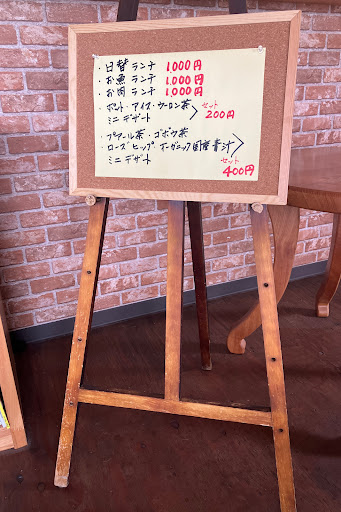 ・日替ランチ 1,000円
・お魚ランチ 1,000円
・お肉ランチ 1,000円
・ホット・アイス・ウーロン茶
ミニデザート セット 200円
・プアール茶・ゴボウ茶
・ローズヒップ オーガニック国産青汁
ミニデザート セット 400円